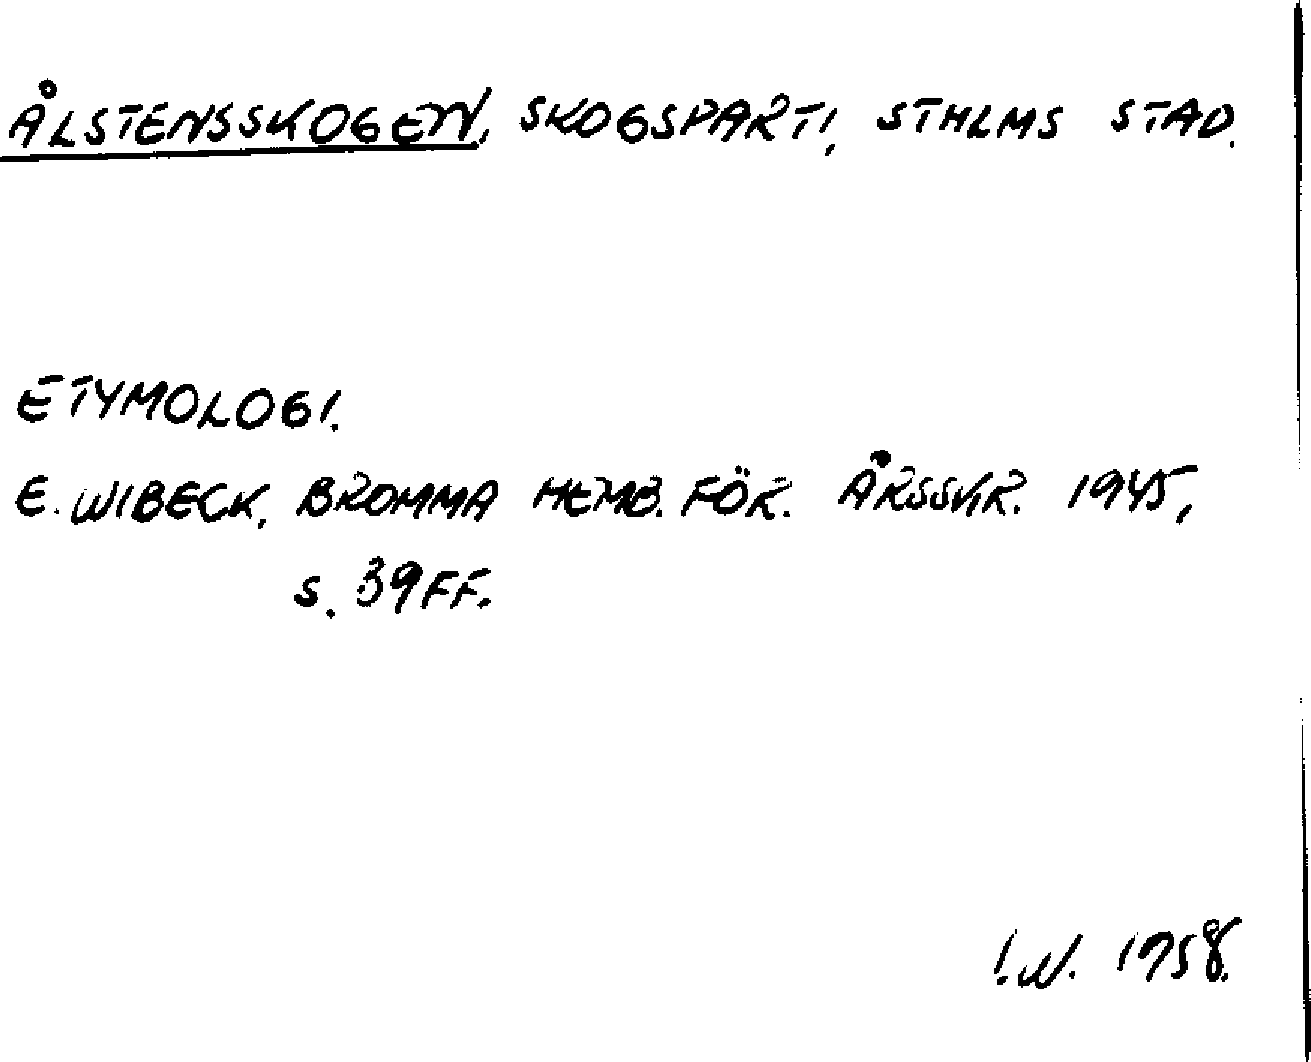 ÅLSTENSSKOGEN, SKOGSPARTI, STHLMS STAD.
ETYMOLOGI.
E. WIBECK, BROMMA HEMB. FÖR. ÅRSSKR. 1945,
S. 39FF.
I.N. 1958.